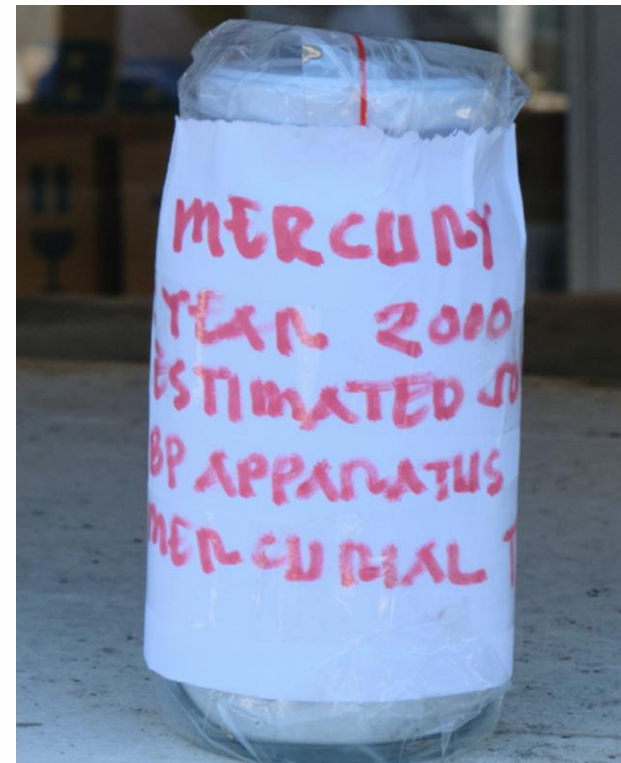 MERCURY
YEAR 2000
ESTIMATED
BP APPARATUS
MERCURIAL